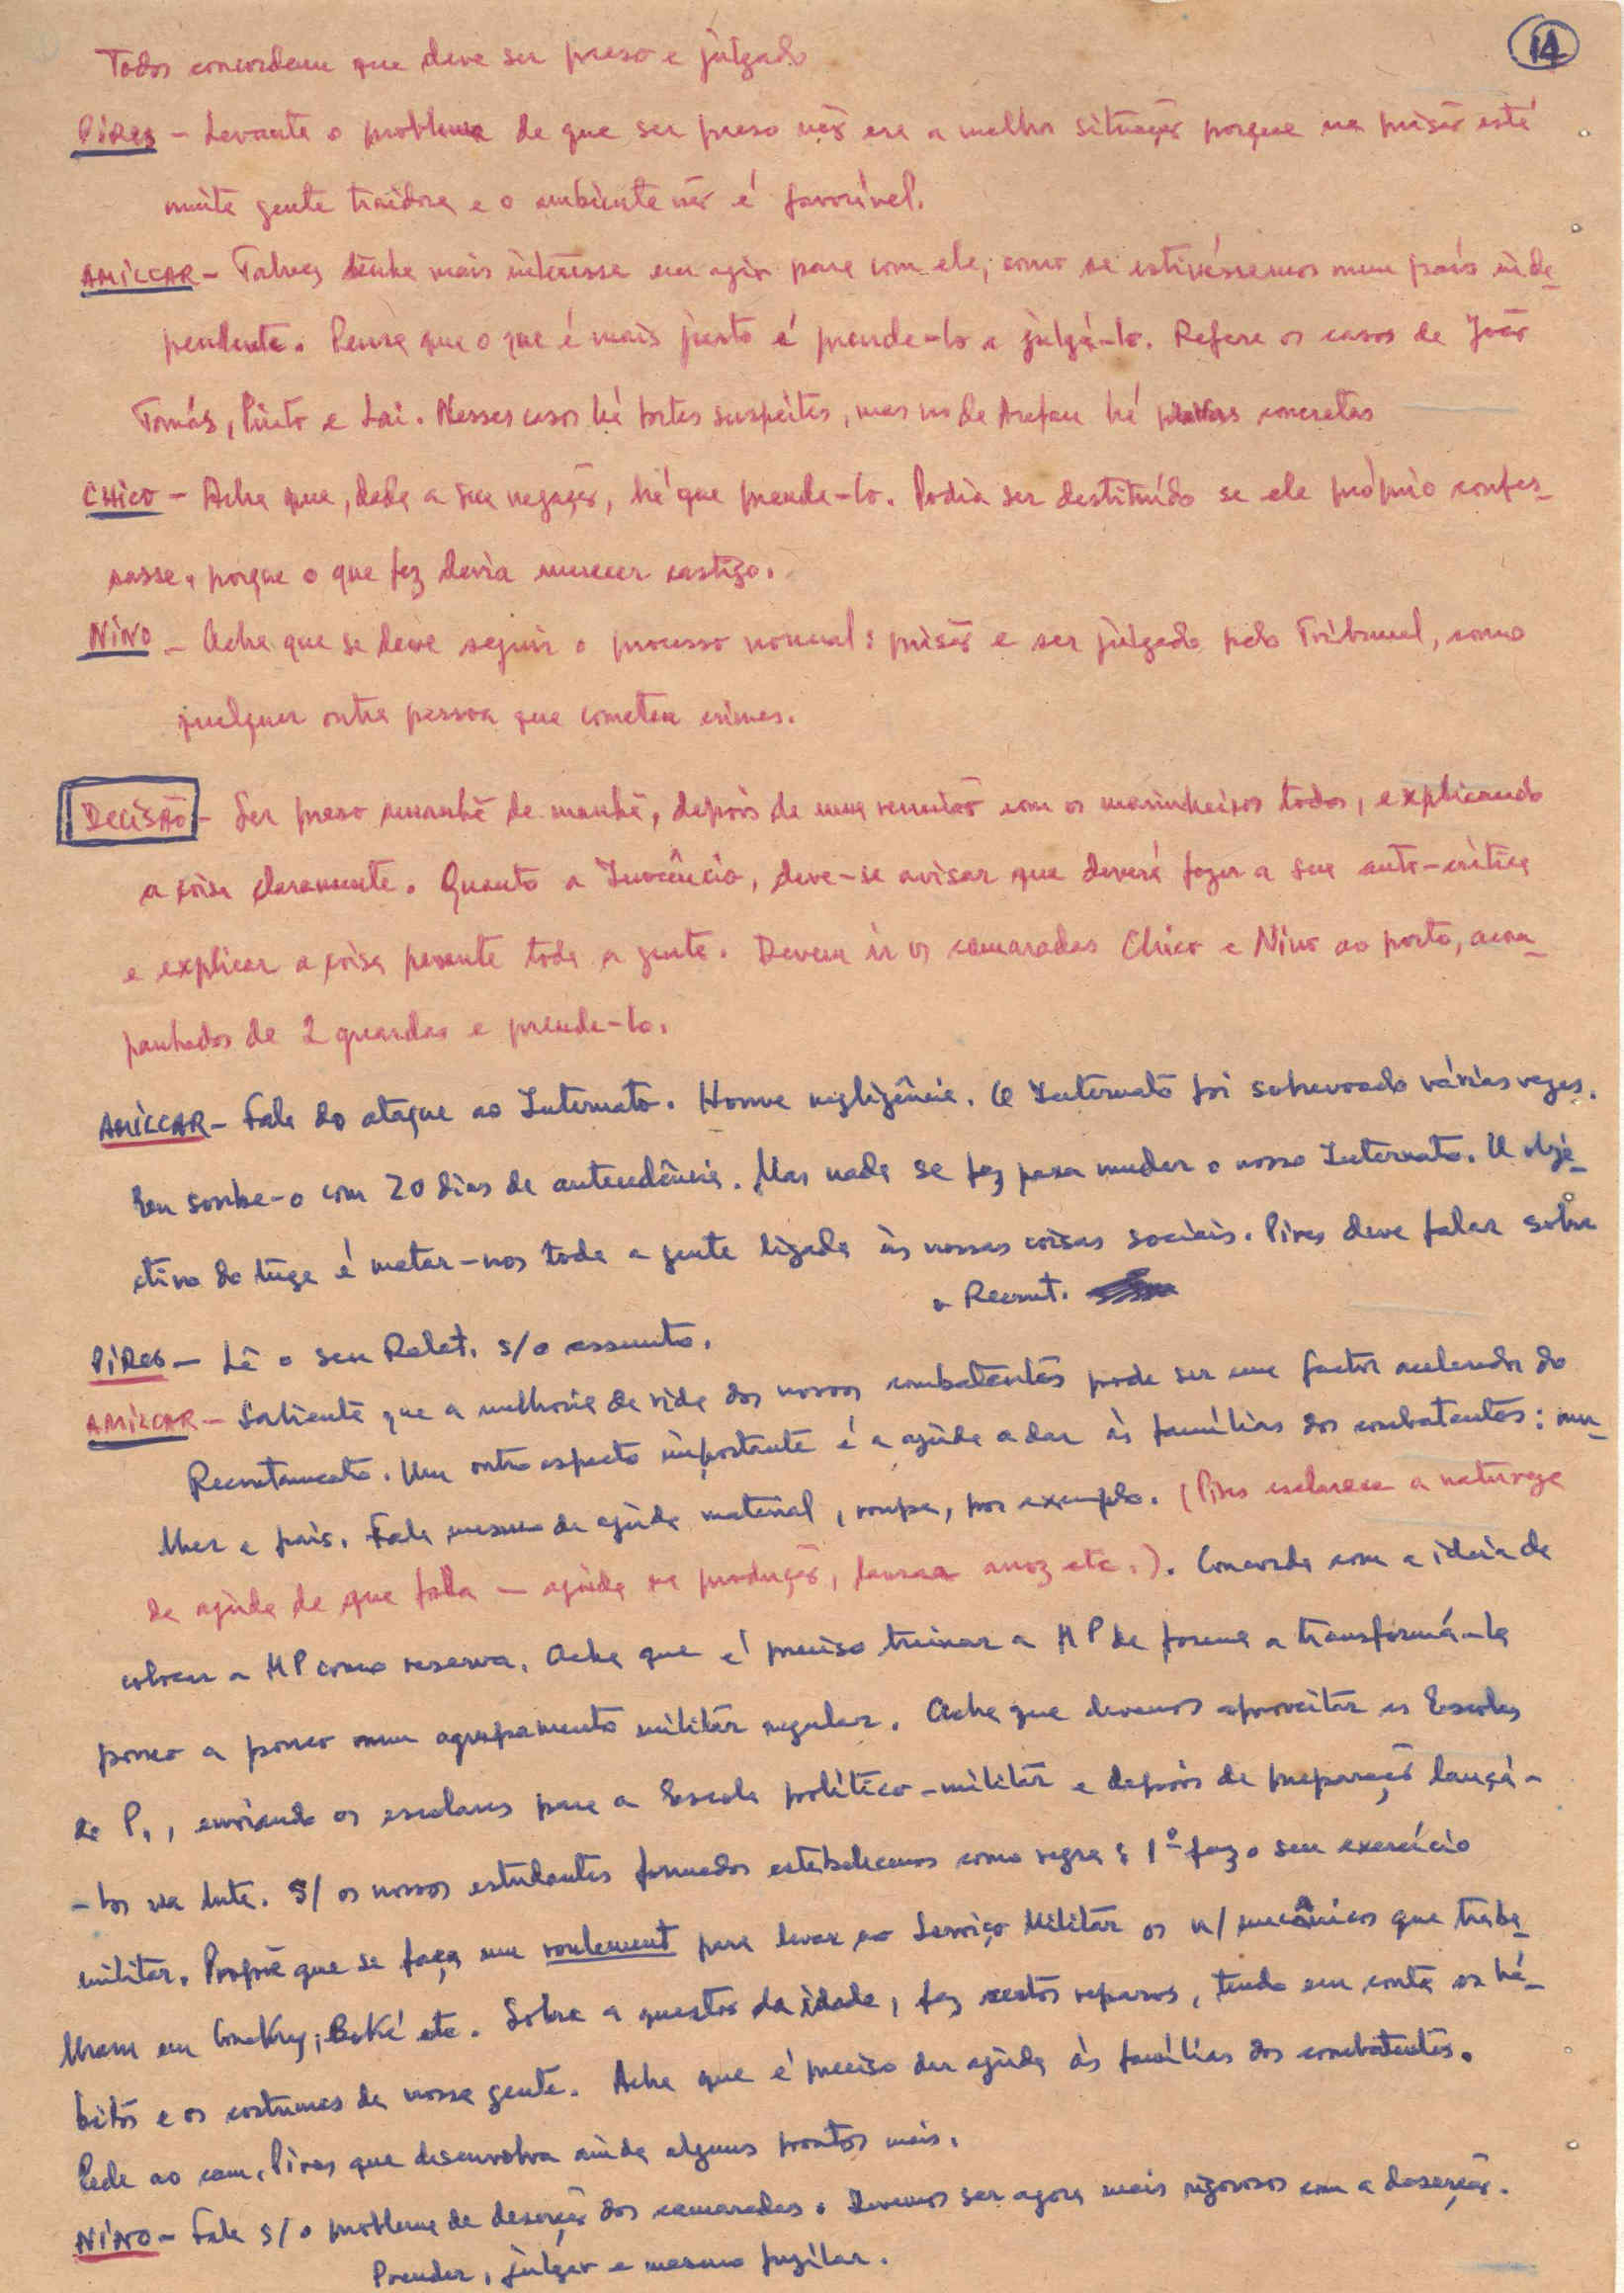 14
Todos concordam que deve ser preso e julgado
PIRES - Levanta o problema de que ser preso não era a melhor situação porque na prisão está
muita gente traidora e o ambiente não é favorável.
AMÍLCAR - Talvez tenha mais interesse em agir para com ele, como se estivéssemos num país inde-
pendente. Pensa que o que é mais justo é prende-lo e julgá-lo. Refere os casos de João
Tomás, Pinto e Lai. Nesses casos há fortes suspeitas, mas no de Arafan há provas concretas
CHICO - Acha que, dada a sua negação, há que prende-lo. Podia ser destituído se ele próprio confes-
sasse, porque o que fez devia merecer castigo.
NINO - Acha que se deve seguir o processo normal: prisão e ser julgado pelo Tribunal, como
qualquer outra pessoa que cometeu crimes.
DECISÃO - Ser preso amanhã de manhã, depois de uma reunião com os marinheiros todos, explicando
a coisa claramente. Quanto a Inocêncio, deve-se avisar que deverá fazer a sua auto-crítica
e explicar a coisa perante toda a gente. Devem ir os camaradas Chico e Nino ao porto, acom-
panhados de 2 guardas e prende-lo.
AMÍLCAR - Fala do ataque ao Internato. Houve negligência. O Internato foi sobrevoado várias vezes.
Eu soube-o com 20 dias de antecedência. Mas nada se fez para mudar o nosso Internato. O obje-
ctivo do tuga é matar-nos toda a gente ligada às nossas coisas sociais. Pires deve falar sobre
o Recrut.
PIRES - Lê o seu Relat. s/o assunto.
AMÍLCAR - Salienta que a melhoria da vida dos nossos combatentes pode ser um factor acelerador do
Recrutamento. Um outro aspecto importante é a ajuda a dar às famílias dos combatentes: mu-
lher e pais. Fala mesmo da ajuda material, roupa, por exemplo. (Pires esclarece a natureza
da ajuda de que fala - ajuda na produção, lavrar arroz etc.). Concorda com a ideia de
colocar a MP como reserva. Acha que é preciso treinar a MP de forma a transformá-la
pouco a pouco num agrupamento militar regular. Acha que devemos aproveitar as Escolas
do P., enviando os escolares para a Escola político-militar e depois de preparação lançá-
-los na luta. S/ os nossos estudantes formados estabelecemos como regra: 1º faz o seu exercício
militar. Propõe que se faça um roulement para levar ao Serviço Militar os n/ mecânicos que traba-
lham em Conakry, Boké etc. Sobre a questão da idade, faz certos reparos, tendo em conta os há-
bitos e os costumes da nossa gente. Acha que é preciso dar ajuda às famílias dos combatentes.
Pede ao cam. Pires que desenvolva ainda alguns pontos mais.
NINO - Fala s/o problema de deserção dos camaradas. Devemos ser agora mais rigorosos com a deserção.
Prender, julgar e mesmo fuzilar.